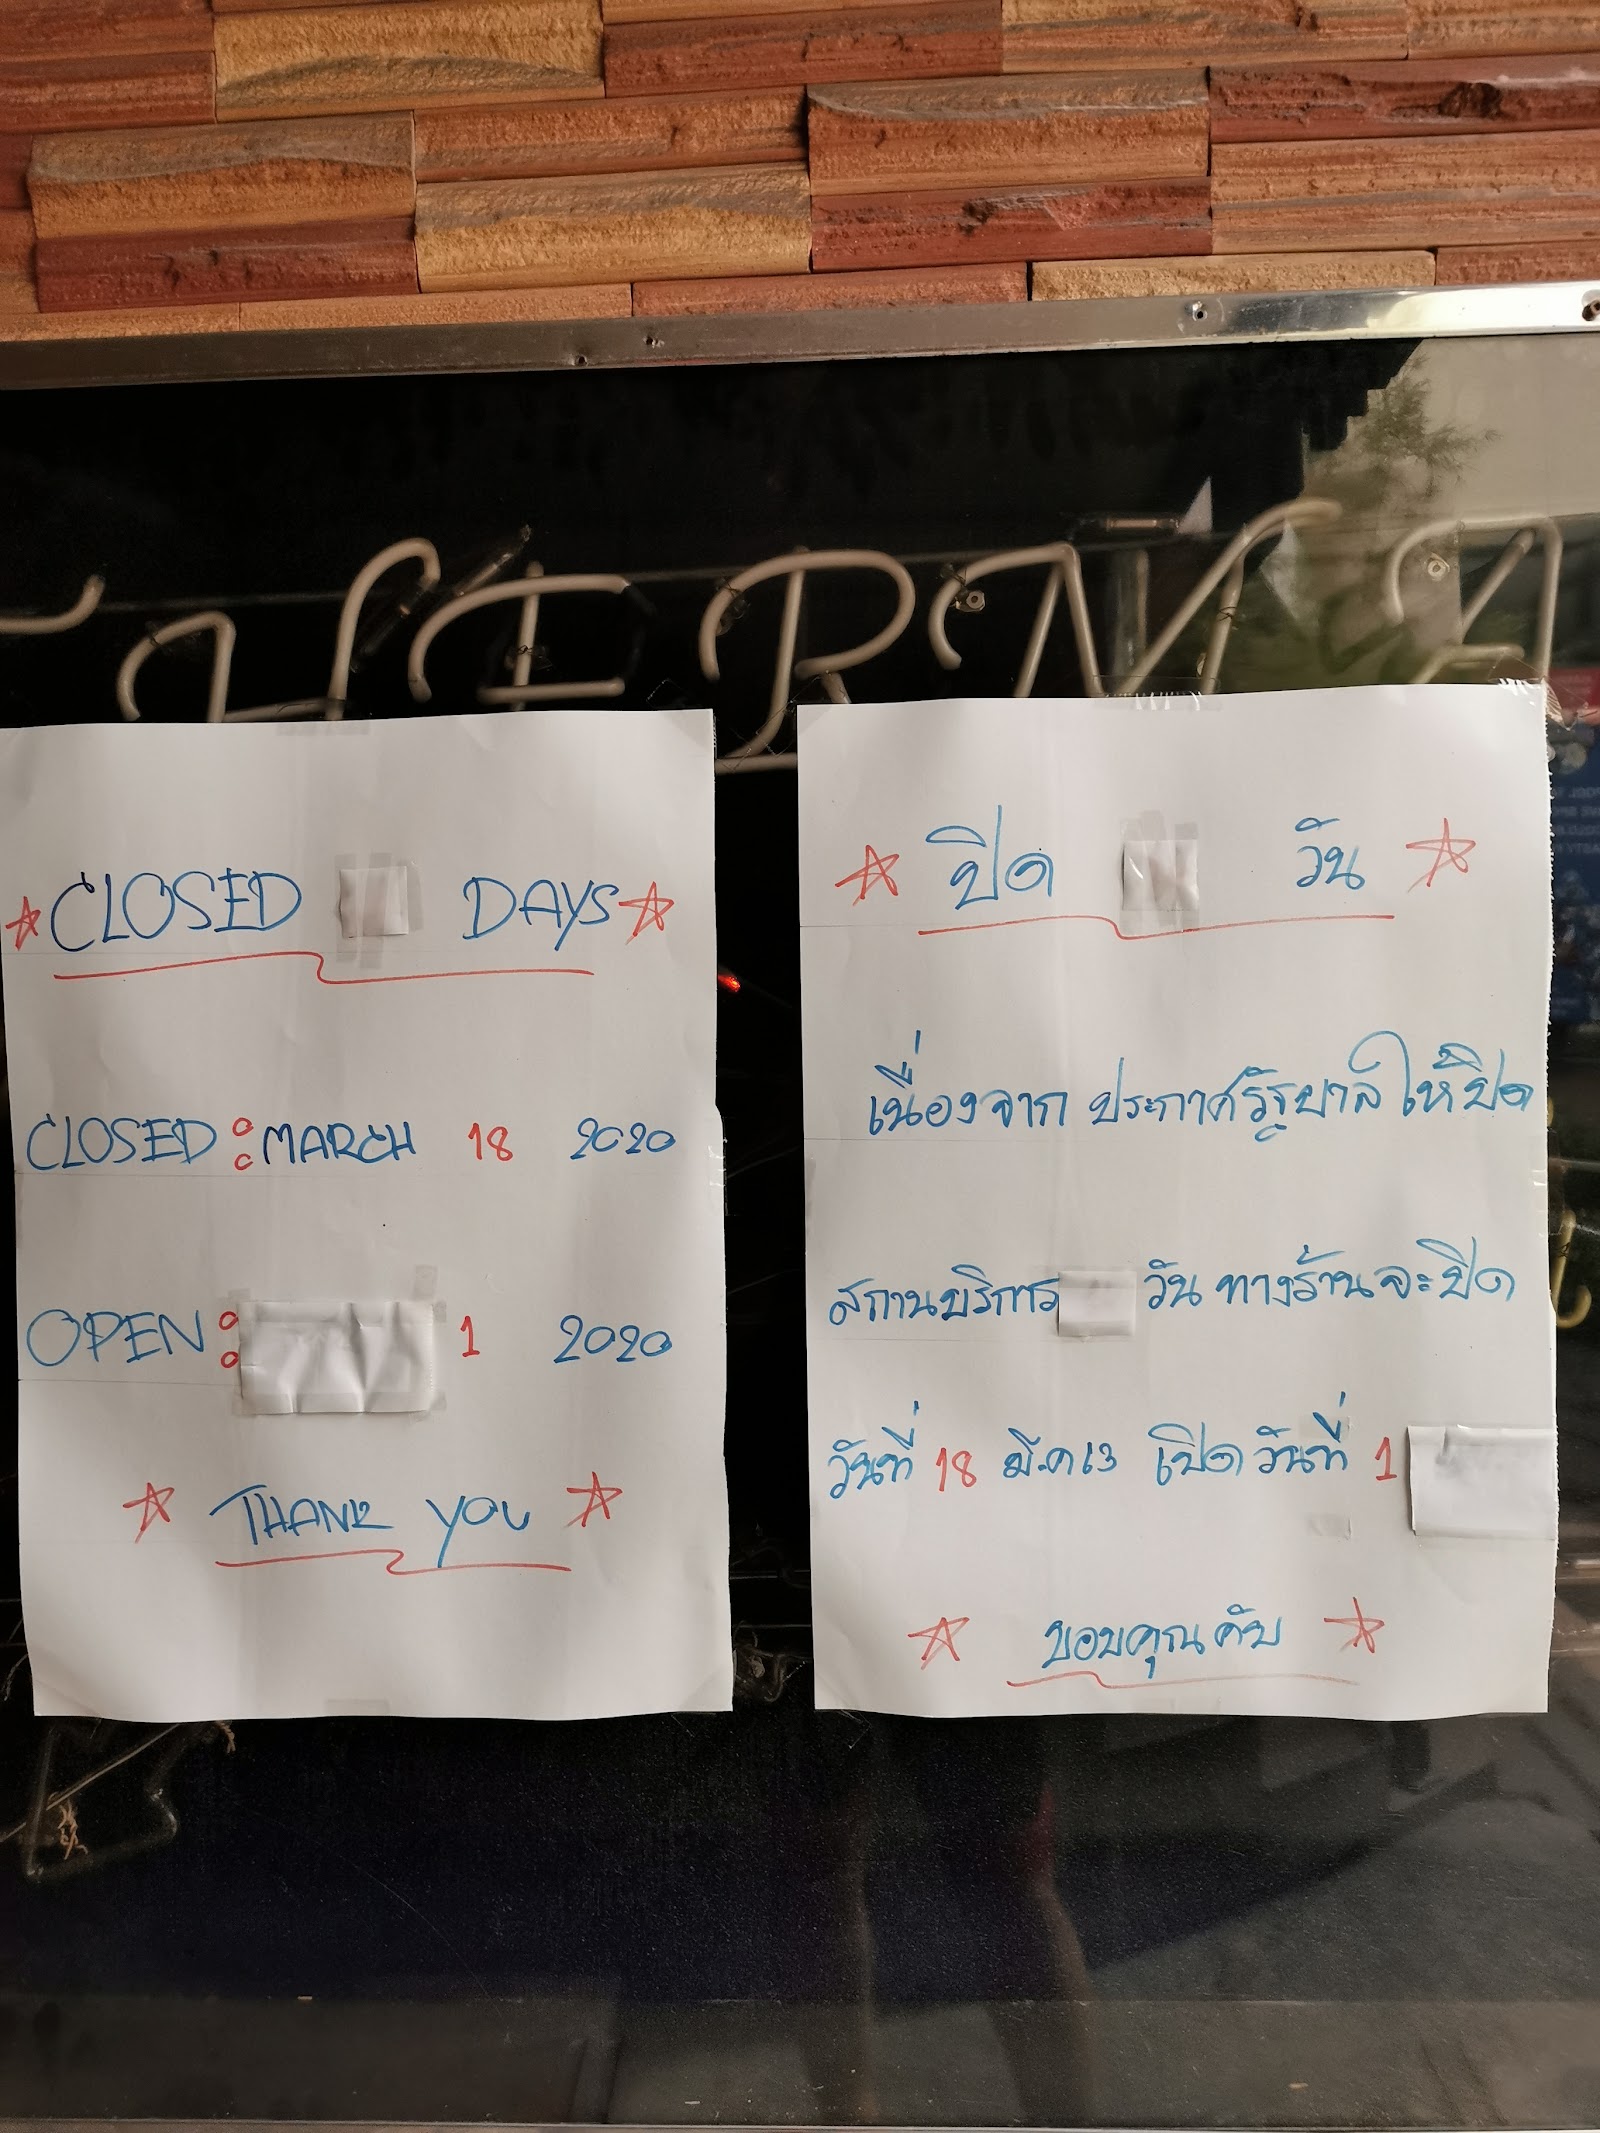 THERMA
☆ CLOSED DAYS ☆
CLOSED : MARCH 18 2020
OPEN : 1 2020
☆ THANK YOU ☆
☆ ปิด วัน ☆
เนื่องจาก ประกาศรัฐบาล ให้ปิด
สถานบริการ วัน ทางร้านจะปิด
วันที่ 18 มี.ค 63 เปิด วันที่ 1
☆ ขอบคุณคับ ☆